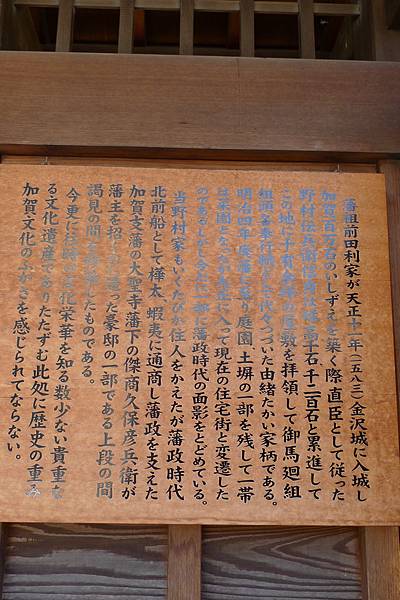 藩祖前田利家が天正十一年(一五八三)金沢城に入城し
加賀百万石のいしずえを築く際直臣として従った
野村伝兵衛信貞は禄高千石千二百石と累進して
この地に千有余坪の屋敷を拝領して御馬廻組
組頭各奉行職として代々つづいた由緒たかい家柄である。
明治四年廃藩と共に庭園土塀の一部を残して一帯
は菜園となったが大正に入って現在の住宅街と変遷した
のであるがしかし今なお一部に藩政時代の面影をとどめている。
当野村家もいくたびか住人をかえたが藩政時代
北前船として樺太、蝦夷に通商し藩政を支えた
加賀支藩の大聖寺藩下の傑商久保彦兵衛が
藩主を招し造った豪邸の一部である上段の間
謁見の間を移したものである。
今更に往時の文化栄華を知る数少ない貴重な
る文化遺産でありたたずむ此処に歴史の重み
加賀文化のふかさを感じられてならない。